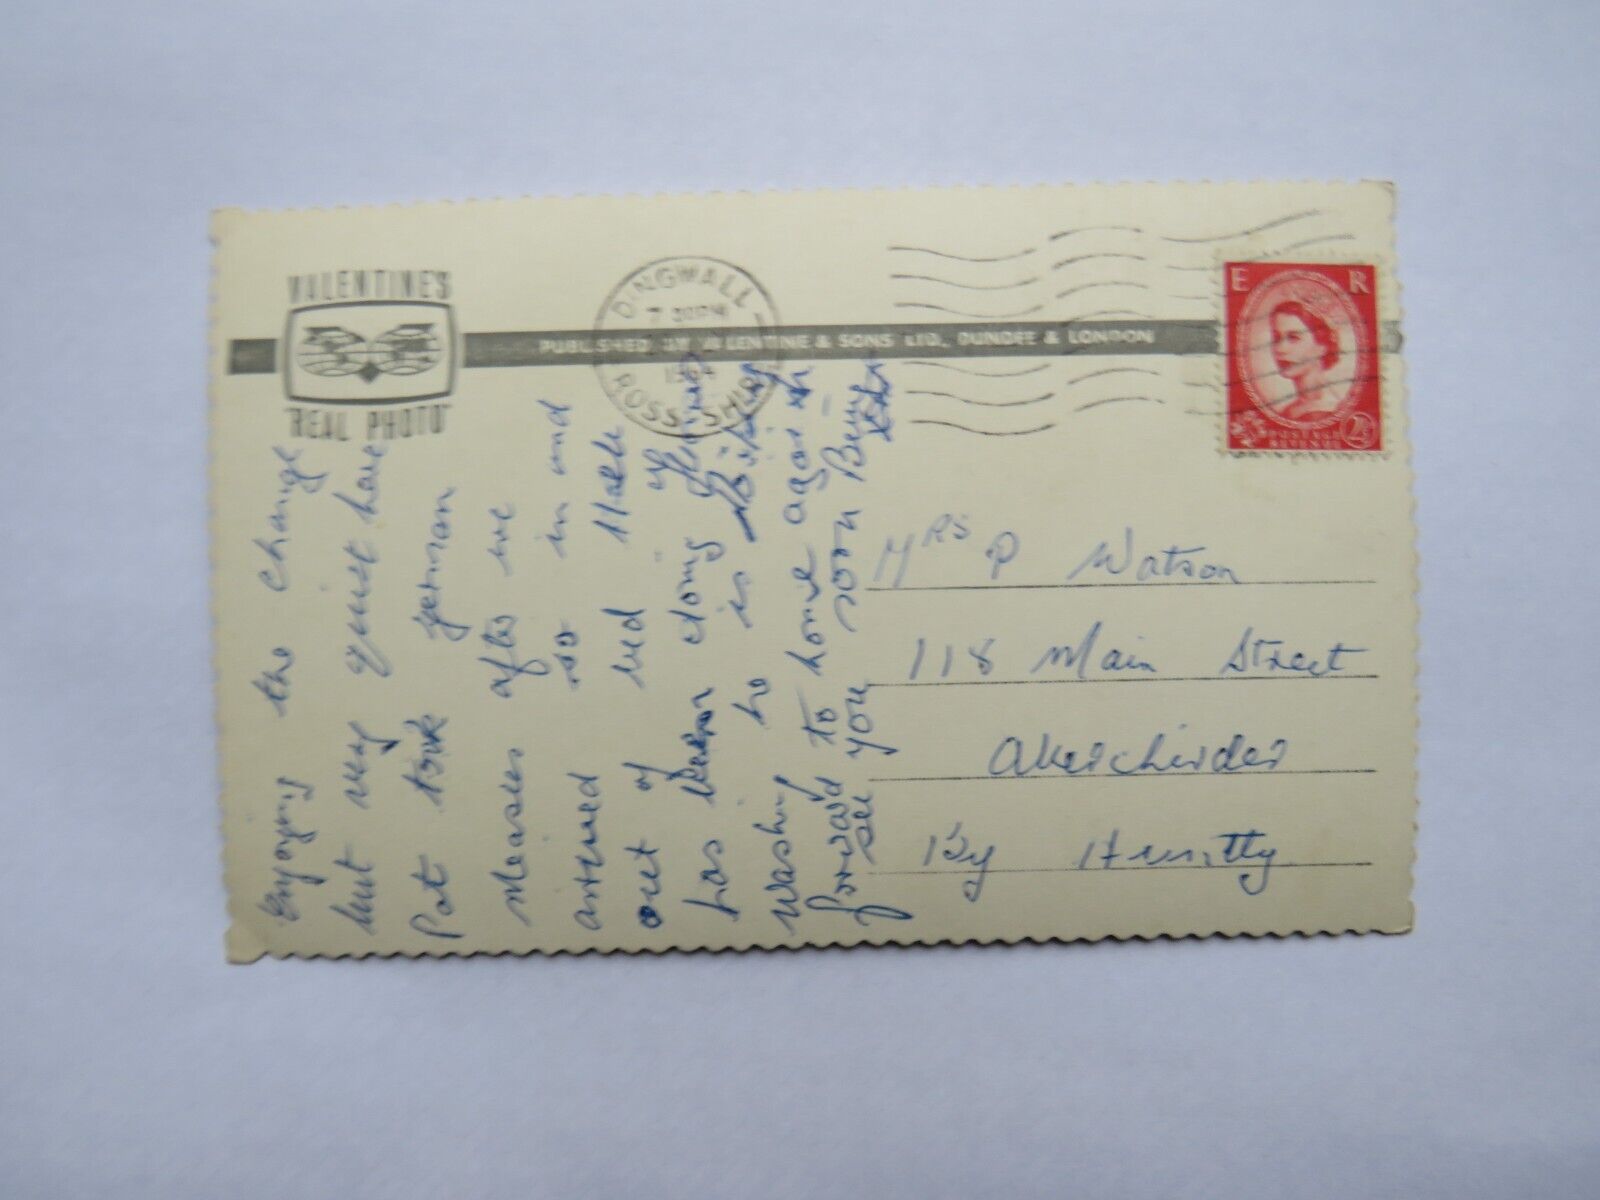 VALENTINE'S
"REAL PHOTO"
PUBLISHED BY VALENTINE & SONS LTD., DUNDEE & LONDON
DINGWALL
7 PM
ROSS-SHIRE
E R
POSTAGE
REVENUE
2½
Enjoying the change
but very quiet have
Pat took german
Measles after we
arrived so in and
out of bed Half
has been doing
washing he is
forward to home again
see you soon
Mrs P Watson
118 Main Street
Aberchirder
By Huntly